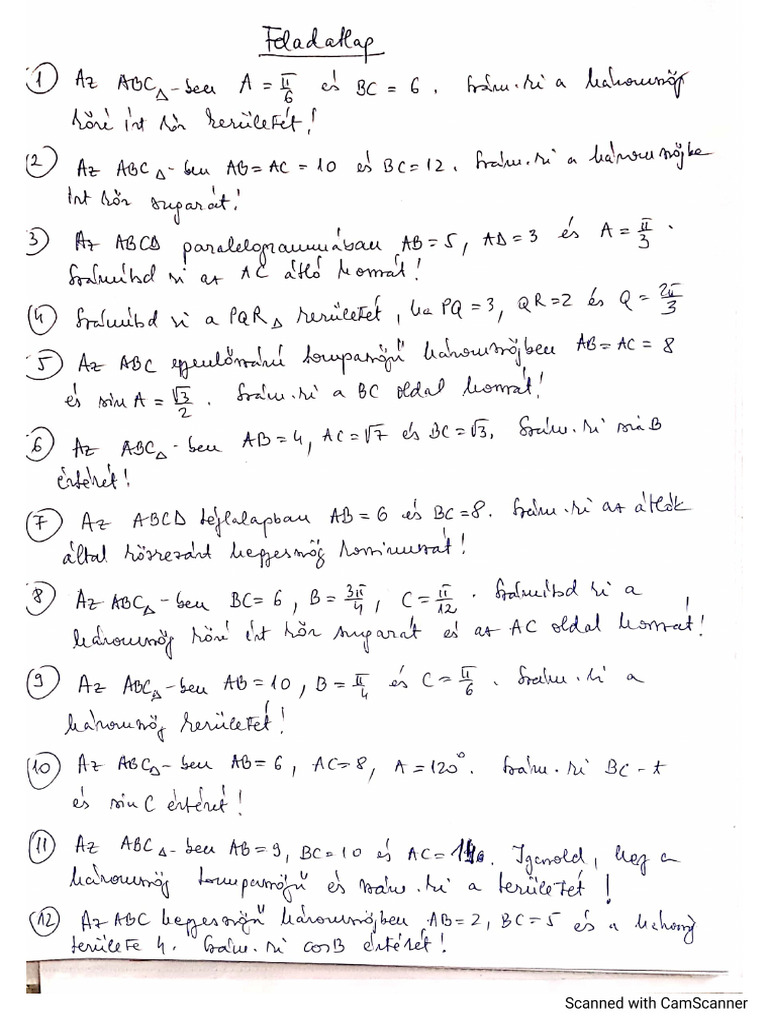 Feladatlap
① Az ABC△-ben A = π/6 és BC = 6. Szám. ki a háromszög
köré írt kör kerületét!
② Az ABC△-ben AB = AC = 10 és BC = 12. Szám. ki a háromszögbe
írt kör sugarát!
③ Az ABCD paralelogrammában AB = 5, AD = 3 és A = π/3.
Számítsd ki az AC átló hosszát!
④ Számítsd ki a PQR△ kerületét, ha PQ = 3, QR = 2 és Q = 2π/3
⑤ Az ABC egyenlőszárú tompaszögű háromszögben AB = AC = 8
és sin A = √3/2. Szám. ki a BC oldal hosszát!
⑥ Az ABC△-ben AB = 4, AC = √7 és BC = √3. Szám. ki sin B
értékét!
⑦ Az ABCD téglalapban AB = 6 és BC = 8. Szám. ki az átlók
által közrezárt hegyesszög koszinuszát!
⑧ Az ABC△-ben BC = 6, B = 3π/4, C = π/12. Számítsd ki a
háromszög köré írt kör sugarát és az AC oldal hosszát!
⑨ Az ABC△-ben AB = 10, B = π/4 és C = π/6. Szám. ki a
háromszög kerületét!
⑩ Az ABC△-ben AB = 6, AC = 8, A = 120°. Szám. ki BC-t
és sin C értékét!
⑪ Az ABC△-ben AB = 9, BC = 10 és AC = Igazold, hogy a
háromszög tompaszögű és szám. ki a területét!
⑫ Az ABC hegyesszögű háromszögben AB = 2, BC = 5 és a
területe 4. Szám. ki cos B értékét!
Scanned with CamScanner